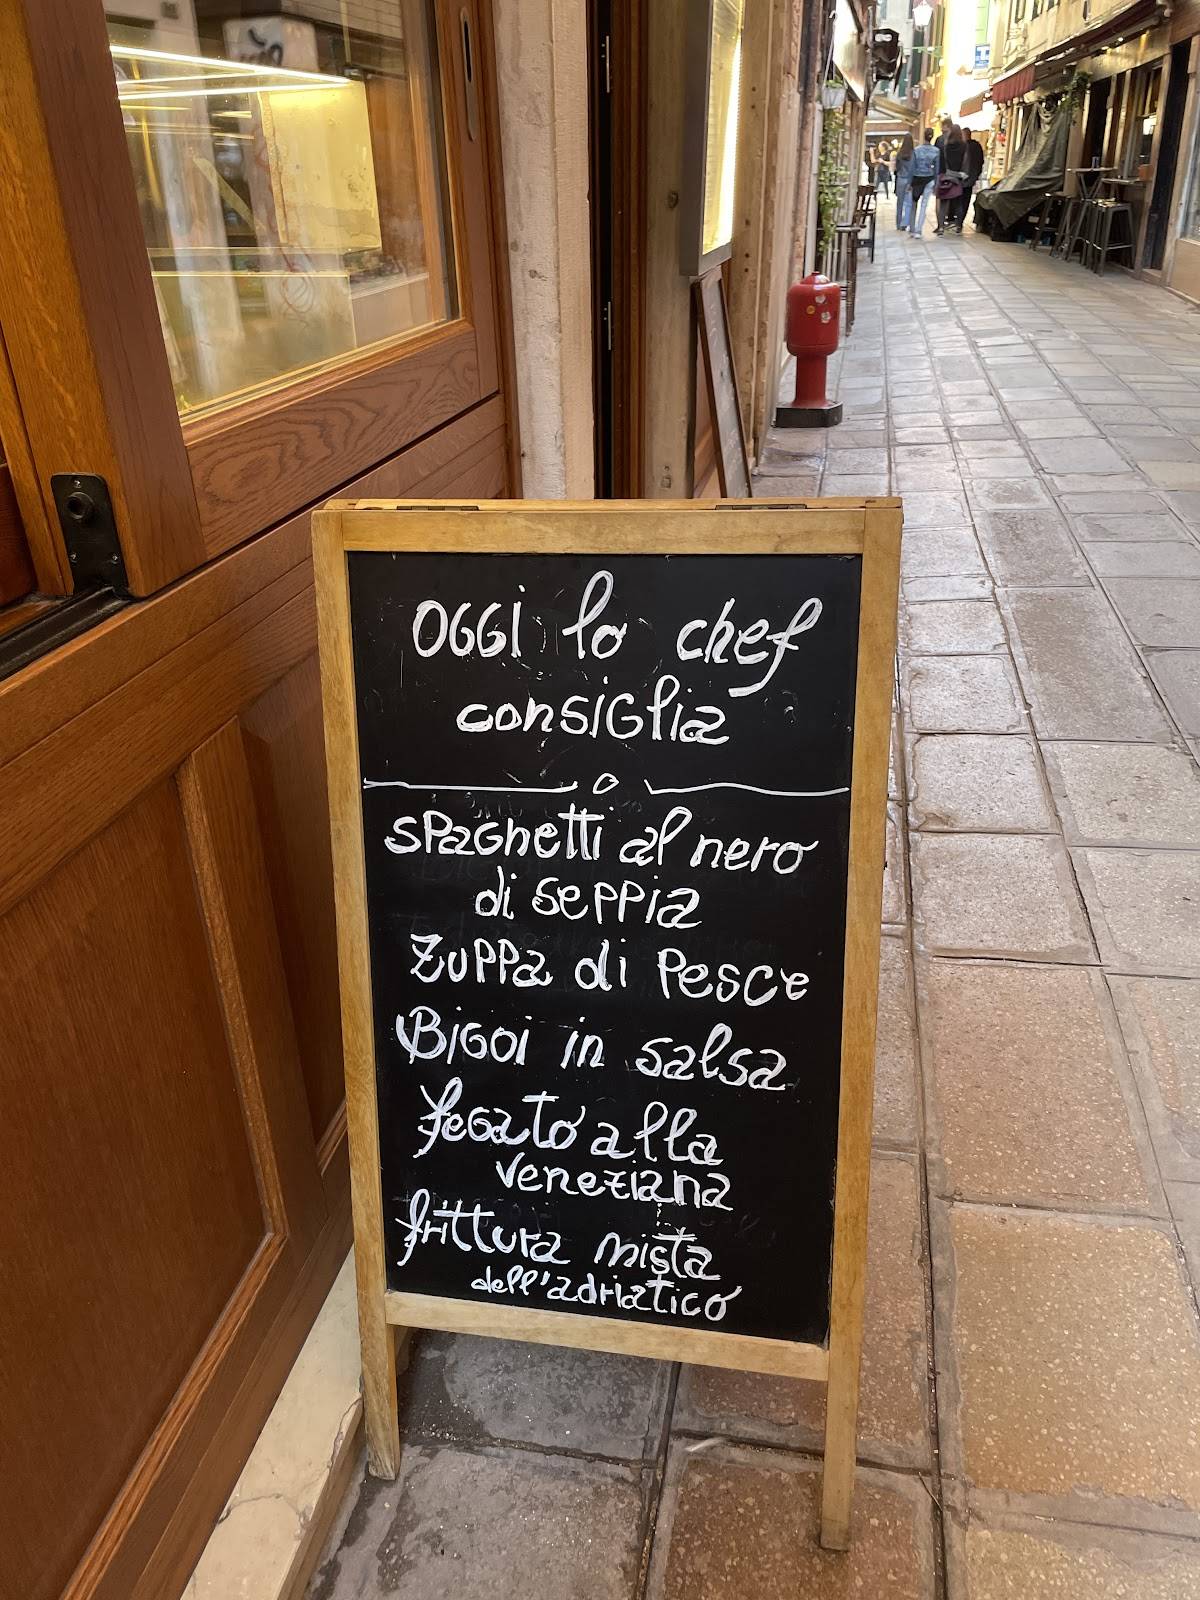 OGGI lo chef
consiglia
spaghetti al nero
di seppia
Zuppa di Pesce
Bigoi in salsa
fegato alla
veneziana
frittura mista
dell'adriatico